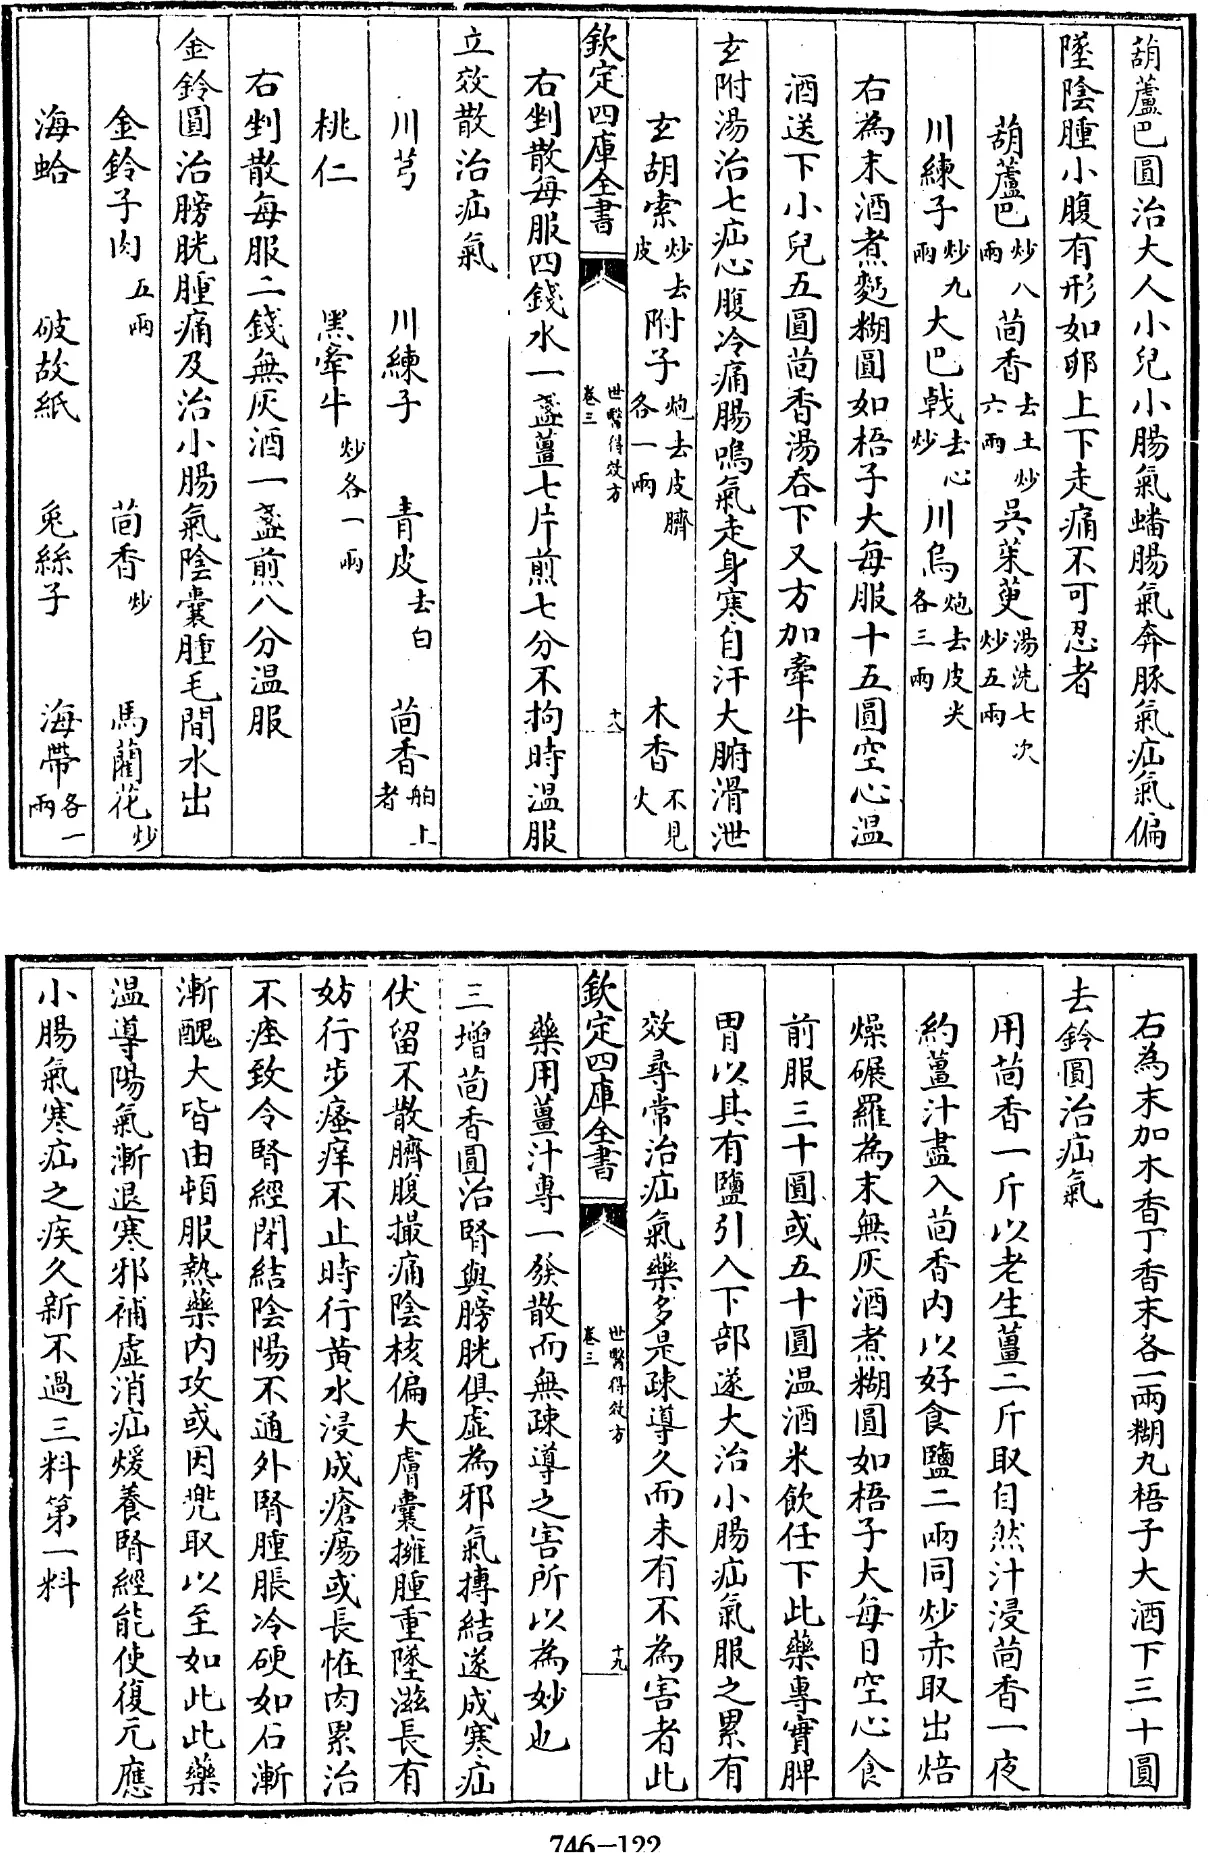 葫蘆巴圓治大人小兒小腸氣蟠腸氣奔豚氣疝氣偏
墜陰腫小腹有形如卵上下走痛不可忍者
葫蘆巴炒八兩 茴香去土炒六兩 吳茱萸湯洗七次炒五兩
川練子炒九兩 大巴戟去心炒 川烏炮去皮尖各三兩
右為末酒煮麪糊圓如梧子大每服十五圓空心溫
酒送下小兒五圓茴香湯吞下又方加牽牛
玄附湯治七疝心腹冷痛腸鳴氣走身寒自汗大腑滑泄
玄胡索炒去皮 附子炮去皮臍各一兩 木香不見火
欽定四庫全書 世醫得效方 卷三 十八
右剉散每服四錢水一盞薑七片煎七分不拘時溫服
立效散治疝氣
川芎 川練子 青皮去白 茴香舶上者
桃仁 黑牽牛炒各一兩
右剉散每服二錢無灰酒一盞煎八分溫服
金鈴圓治膀胱腫痛及治小腸氣陰囊腫毛間水出
金鈴子肉五兩 茴香炒 馬藺花炒
海蛤 破故紙 兔絲子 海帶各一兩
右為末加木香丁香末各一兩糊丸梧子大酒下三十圓
去鈴圓治疝氣
用茴香一斤以老生薑二斤取自然汁浸茴香一夜
約薑汁盡入茴香內以好食鹽二兩同炒赤取出焙
燥碾羅為末無灰酒煮糊圓如梧子大每日空心食
前服三十圓或五十圓溫酒米飲任下此藥專實脾
胃以其有鹽引入下部遂大治小腸疝氣服之累有
效尋常治疝氣藥多是疎導久而未有不為害者此
欽定四庫全書 世醫得效方 卷三 十九
藥用薑汁專一發散而無疎導之害所以為妙也
三增茴香圓治腎與膀胱俱虛為邪氣搏結遂成寒疝
伏留不散臍腹撮痛陰核偏大膚囊擁腫重墜滋長有
妨行步瘙痒不止時行黃水浸成瘡瘍或長怪肉累治
不痊致令腎經閉結陰陽不通外腎腫脹冷硬如石漸
漸醜大皆由頓服熱藥內攻或因兜取以至如此此藥
溫導陽氣漸退寒邪補虛消疝煖養腎經能使復元應
小腸氣寒疝之疾久新不過三料第一料
746-122